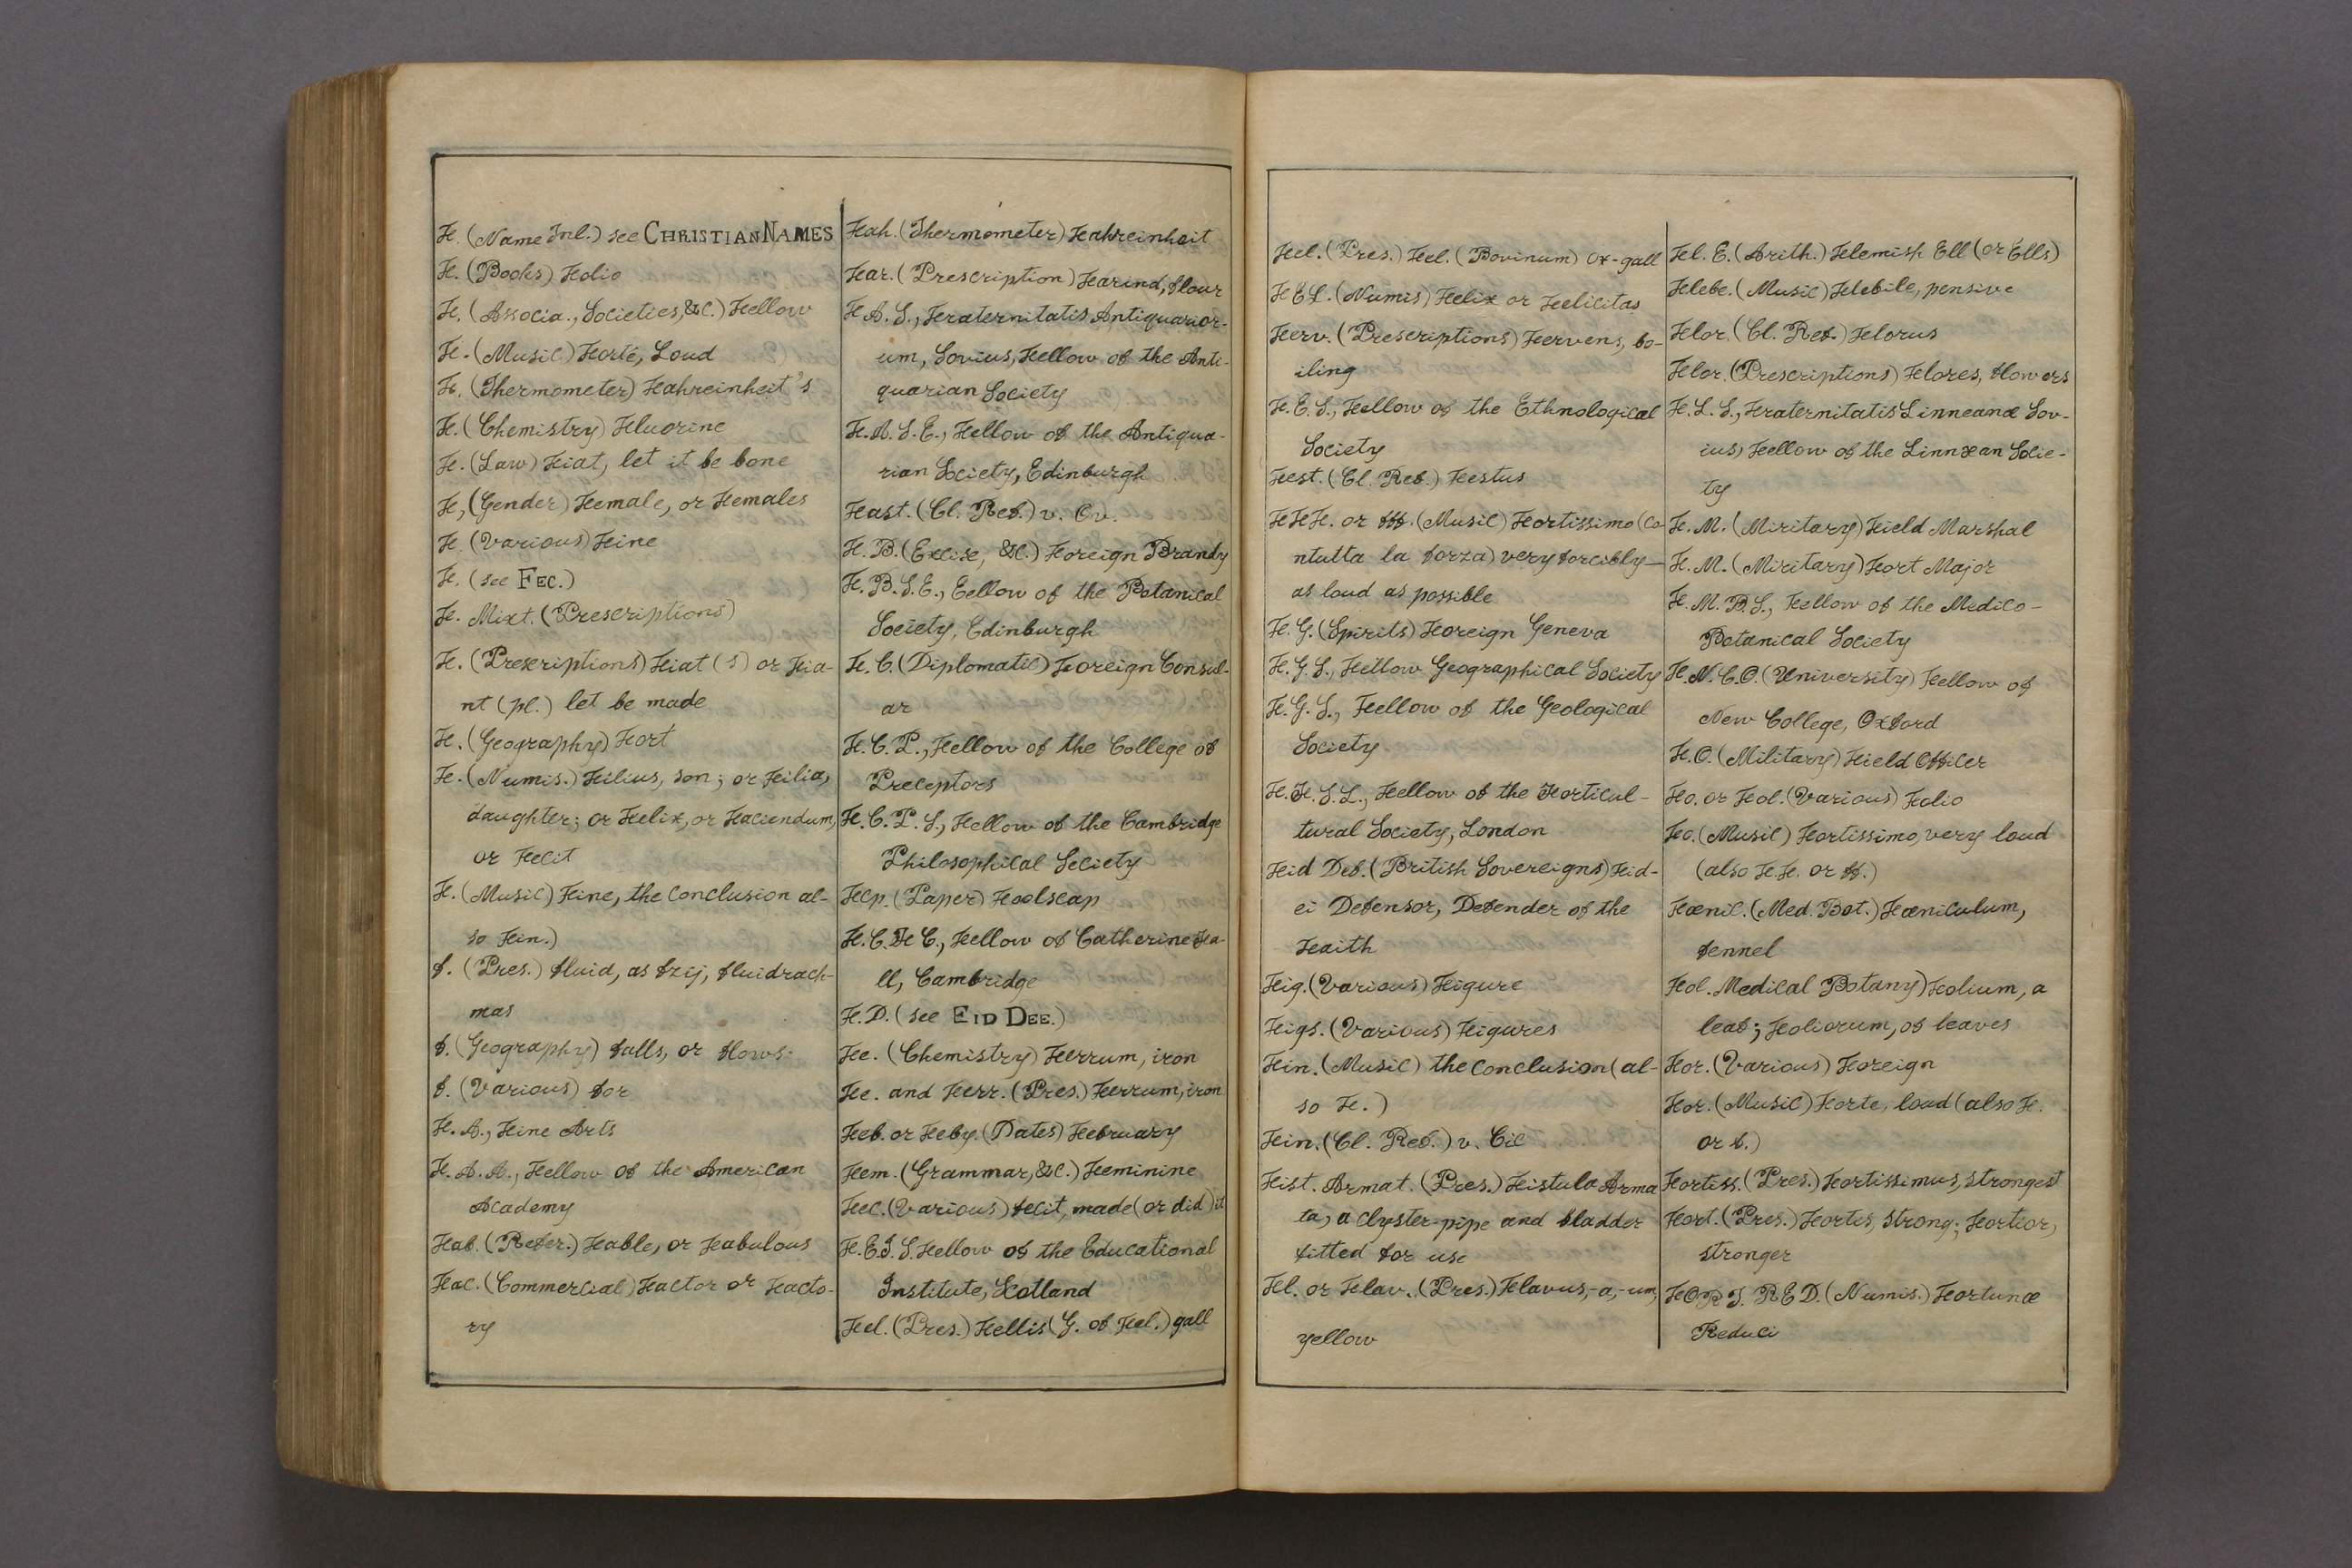 F. (Name Inl.) see CHRISTIAN NAMES
F. (Books) Folio
F. (Associa., Societies, &c.) Fellow
F. (Music) Forté, Loud
F. (Thermometer) Fahreinheit's
F. (Chemistry) Fluorine
F. (Law) Fiat, let it be bone
F, (Gender) Female, or Females
F. (Various) Fine
F. (see FEC.)
F. Mixt. (Prescriptions)
F. (Prescriptions) Fiat (s) or Fia-
nt (pl.) let be made
F. (Geography) Fort
F. (Numis.) Filius, son; or Filia,
daughter; or Felix, or Faciendum,
or Fecit
F. (Music) Fine, the conclusion al-
so Fin.)
f. (Pres.) fluid, as fzij, fluidrach-
mas
f. (Geography) falls, or flows.
f. (Various) for
F. A., Fine Arts
F. A. A., Fellow of the American
Academy
Fab. (Refer.) Fable, or Fabulous
Fac. (Commercial) Factor or Facto-
ry
Fah. (Thermometer) Fahreinheit
Far. (Prescription) Farind, flour
F A. S., Fraternitatis Antiquarior-
um, Sovius, Fellow of the Anti-
quarian Society
F. A. S. E., Fellow of the Antiqua-
rian Society, Edinburgh
Fast. (Cl. Ref.) v. Ov.
F. B. (Excise, &c.) Foreign Brandy
F. B. S. E., Eellow of the Botanical
Society, Edinburgh
F. C. (Diplomatic) Foreign Consul-
ar
F. C. P., Fellow of the College of
Preceptors
F. C. P. S., Fellow of the Cambridge
Philosophical Seciety
Fcp. (Paper) Foolscap
F. C. H C., Fellow of Catherine Ha-
ll, Cambridge
F. D. (see EID DEE.)
Fe. (Chemistry) Ferrum, iron
Fe. and Ferr. (Pres.) Ferrum, iron
Feb. or Feby. (Dates) February
Fem. (Grammar, &c.) Feminine
Fec. (Various) fecit, made (or did) it
F. E. I. S. Fellow of the Educational
Institute, Scotland
Fel. (Pres.) Fellis (G. of Fel.) gall
Fel. (Pres.) Fel. (Bovinum) Ox-gall
F E L. (Numis) Felix or Felicitas
Ferv. (Prescriptions) Fervens, bo-
iling
F. E. S., Fellow of the Ethnological
Society
Fest. (Cl. Ref.) Festus
F F F. or fff. (Music) Fortissimo (co-
ntutta la forza) very forcibly—
as loud as possible
F. G. (Spirits) Foreign Geneva
F. G. S., Fellow Geographical Society
F. G. S., Fellow of the Geological
Society
F. H. S. L., Fellow of the Horticul-
tural Society, London
Fid Def. (British Sovereigns) Fid-
ei Defensor, Defender of the
Faith
Fig. (Various) Figure
Figs. (Various) Figures
Fin. (Music) the conclusion (al-
so F.)
Fin. (Cl. Ref.) v. Cic
Fist. Armat. (Pres.) Fistula Arma
ta, a clyster-pipe and bladder
fitted for use
Fl. or Flav. (Pres.) Flavus,-a,-um,
yellow
Fl. E. (Arith.) Flemish Ell (or Ells)
Flebe. (Music) Flebile, pensive
Flor. (Cl. Ref.) Florus
Flor. (Prescriptions) Flores, flowers
F. L. S., Fraternitatis Linneanæ Sov-
ius, Fellow of the Linnæan Socie-
ty
F. M. (Miritary) Field Marshal
F. M. (Miritary) Fort Major
F. M. B. S., Fellow of the Medico-
Botanical Society
F. N. C. O. (University) Fellow of
New College, Oxford
F. O. (Military) Field Officer
Fo. or Fol. (Various) Folio
Fo. (Music) Fortissimo, very loud
(also F. F. or ff.)
Fœnic. (Med. Bot.) Fœniculum,
fennel
Fol. Medical Botany) Folium, a
leaf; Foliorum, of leaves
For. (Various) Foreign
For. (Music) Forte, loud (also F.
or f.)
Fortiss. (Pres.) Fortissimus, strongest
Fort. (Pres.) Fortis, strong; Fortior,
stronger
F O R T. R E D. (Numis.) Fortunæ
Reduci